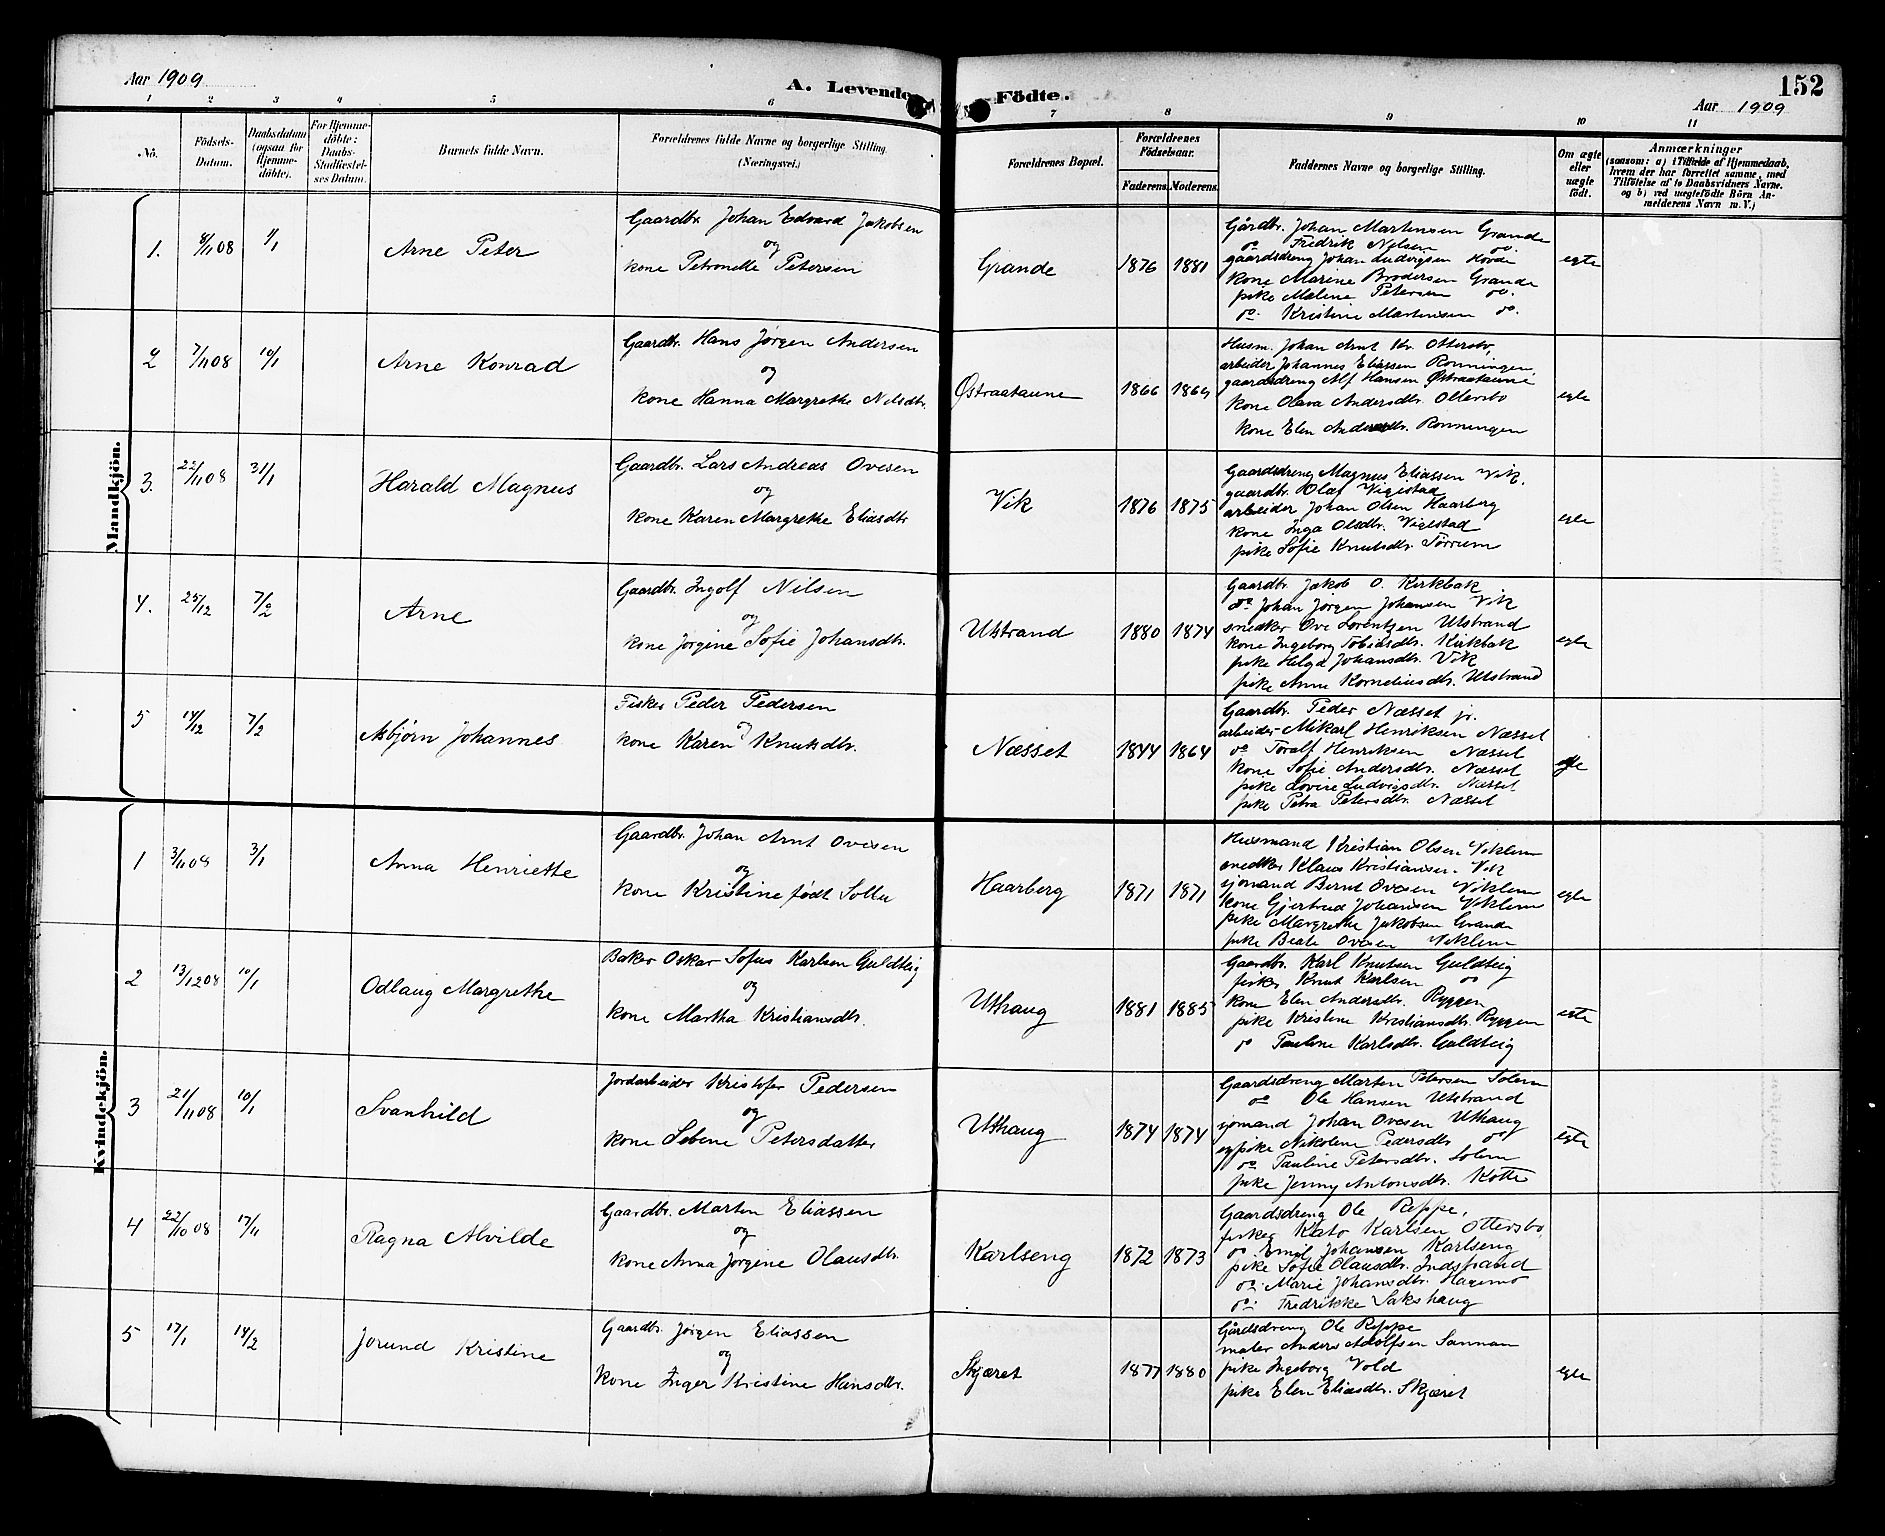 Aar 1909
A. Levende Födte.
152
Aar 1909
1 2 3 4 5 6 7 8 9 10 11
No.
Födsels-Datum.
Daabsdatum (ogsaa for Hjemme-döbte).
For Hjemme-döbte: Daabs-Stadfæstel-ses Datum.
Barnets fulde Navn.
Forældrenes fulde Navne og borgerlige Stilling (Næringsvei.)
Forældrenes Bopæl.
Forældrenes Födselsaar.
Faderens. Moderens.
Faddernes Navne og borgerlige Stilling.
Om ægte eller uægte födt.
Anmærkninger
(saasom: a) i Tilfælde af Hjemmedaab, hvem der har forrettet samme, med Tilföielse af to Daabsvidners Navne, og b) ved uægtefödte Börn Anmelderens Navn m. V.)
Mandkjön.
1. 8/11 08 1/1 Arne Peter
Gaardbr. Johan Edvard Jakobsen
og
kone Petronelle Petersen
Grande 1876 1881
Gårdbr. Johan Martensen Grande
do Fredrik Nilsen do.
gaardsdreng Johan Ludvigsen Hovde
kone Marine Brodersen Grande
pike Malene Petersen do.
do. Kristine Martensen do.
egte
2 7/11 08 10/1 Arne Konrad
Gaardbr. Hans Jørgen Andersen
og
kone Hanna Margrethe Nilsdtr.
Østraataune 1866 1864
Husm. Johan Arnt Kr. Ottersbo,
arbeider Johannes Eliassen Ronningen,
gaardsdreng Alf Hansen Østraataune
kone Olava Andersdtr. Ottersbo
kone Elen Andersdtr. Ronningen
egte
3. 22/11 08 31/1 Harald Magnus
Gaardbr. Lars Andreas Ovesen
og
kone Karen Margrethe Eliasdtr.
Vik 1876 1875
Gaardsdreng Magnus Eliassen Vik,
gaardbr. Olaf Vigestad
arbeider Johan Olsen Haarberg
kone Inga Olsdtr. Vigestad
pike Sofie Knutsdtr. Tørrum
egte
4. 25/12 7/2 Arne
Gaardbr. Ingolf Nilsen
og
kone Jørgine Sofie Johansdtr.
Utstrand 1880 1874
Gaardbr. Jakob O. Kirkbak
do Johan Jørgen Johansen Vik
snedker Ove Lorentzen Utstrand
kone Ingeborg Tobiasdtr. Kirkbak
pike Helga Johansdtr. Vik
pike Anne Korneliusdtr. Utstrand
egte
5 14/12 7/2 Asbjørn Johannes
Fisker Peder Pedersen
og
kone Karen Knutsdtr.
Næsset 1844 1864
Gaardbr. Peder Næsset jr.
arbeider Mikael Henriksen Næsset
do Toralf Henriksen Næsset
kone Sofie Andersdtr. Næsset
pike Lovise Ludvigsdtr. Næsset
pike Petra Petersdtr. Næsset
egte
Kvindekjön.
1 3/11 08 3/1 Anna Henriette
Gaardbr. Johan Arnt Ovesen
og
kone Kristine født
Haarberg 1871 1871
Husmand Kristian Olsen Viklem
snedker Klaus Kristiansen Vik
sjømand Bernt Ovesen Viklem
kone Gjertrud Johansen Viklem
pike Margrethe Jakobsen Grande
pike Beate Ovesen Viklem
egte
2 13/12 08 10/1 Odlaug Margrethe
Baker Oskar Sofus Karlsen Guldteig
og
kone Martha Kristiansdtr.
Uthaug 1881 1885
Gaardbr. Karl Knutsen Guldteig
fisker Knut Karlsen do
kone Elen Andersdtr. Ryggen
pike Kristine Kristiansdtr. Ryggen
do Pauline Karlsdtr. Guldteig
egte
3 21/11 08 10/1 Svanhild
Jordarbeider Kristofer Pedersen
og
kone Sebene Petersdatter
Uthaug 1874 1874
Gaardsdreng Marten Petersen Solem
do Ole Hansen Utstrand
sjømand Johan Ovesen Uthaug
pike Nikoline Pedersdtr. do
do Pauline Petersdtr. Solem
pike Jenny Antonsdtr. Kotte
egte
4 22/10 08 17/11 Ragna Alvilde
Gaardbr. Marten Eliassen
og
kone Anna Jørgine Olausdtr.
Karlseng 1872 1873
Gaardsdreng Ole Reppe,
fisker Kato Karlsen Ottersbo,
do. Emil Johansen Karlseng
pike Sofie Olausdtr. Indstrand
do. Marie Johansdtr. Hagemo
do. Fredrikke Sakshaug
5 17/1 14/2 Jorund Kristine
Gaardbr. Jørgen Eliassen
og
kone Inger Kristine Hansdtr.
Skjæret 1877 1880
Gårdsdreng Ole Reppe
maler Anders Adolfsen Sannan
pike Ingeborg Vold
pike Elen Eliasdtr. Skjæret
egte